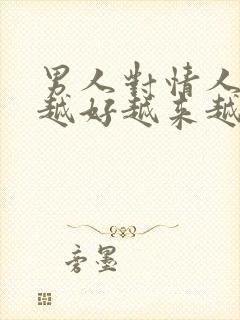 男人對情人
越好越来越
旁墨